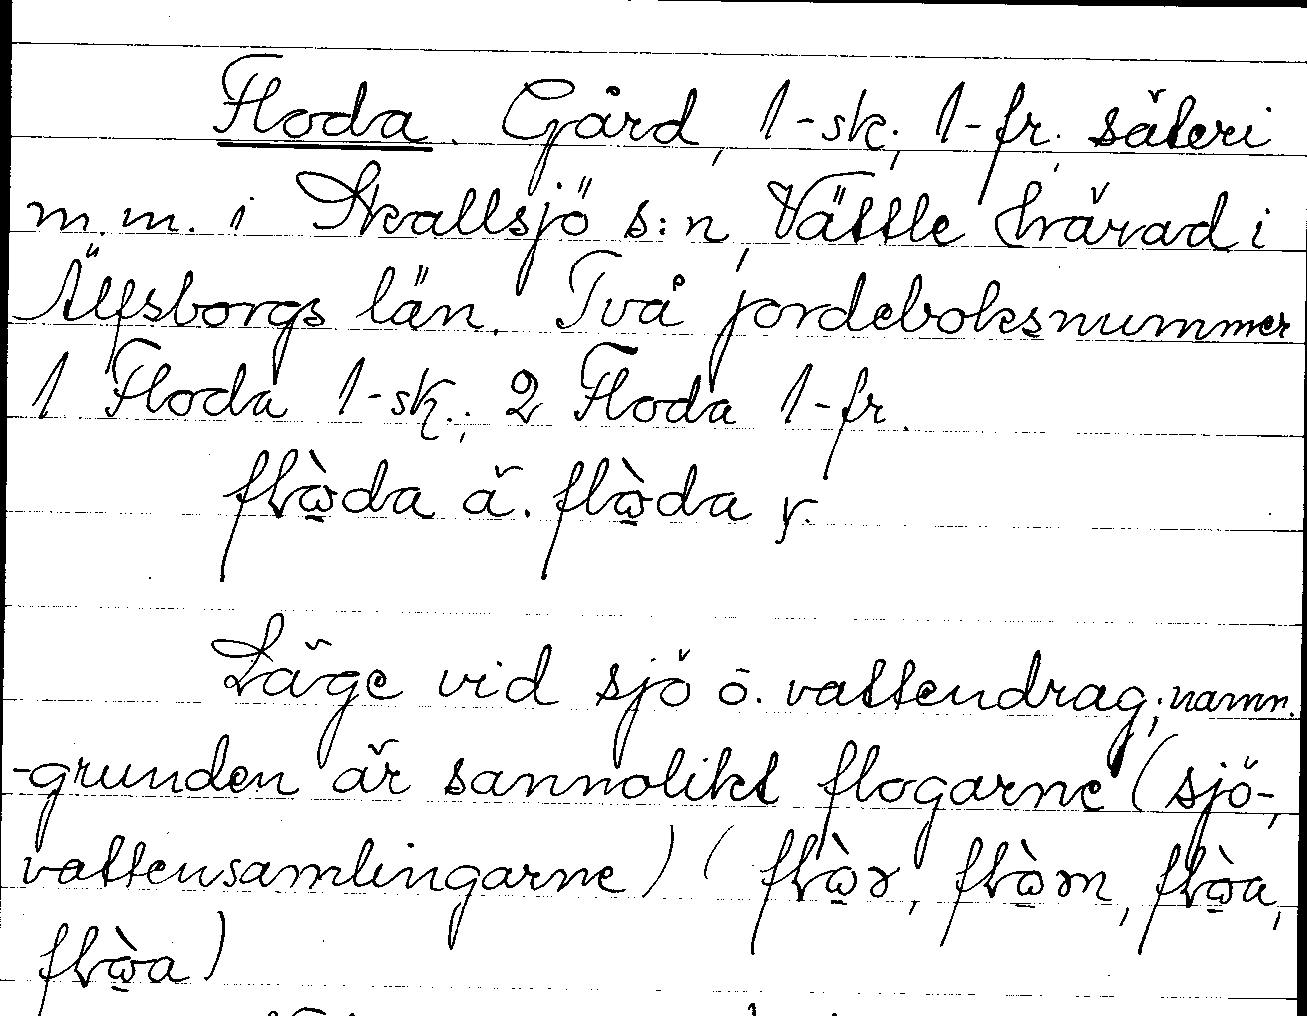 Floda. Gård, 1-sk; 1-fr; säteri
m.m. i Skallsjö s:n, Vättle härad i
Älfsborgs län. Två jordeboksnummer
1 Floda 1-sk.; 2 Floda 1-fr.
flὼ̱da ä. flὼ̱da y.
Läge vid sjö o. vattendrag; namn.
-grunden är sannolikt flogarne (sjö-,
vattensamlingarne) (flὼ̱r, flὼ̱rn, flὼ̱a,
flὼ̱a)